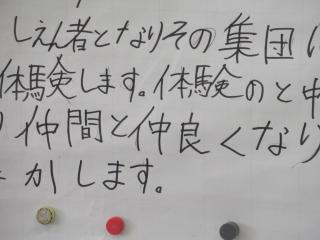 しえん者となりその集団
体験します。体験のと中
仲間と仲良くなり
かします。